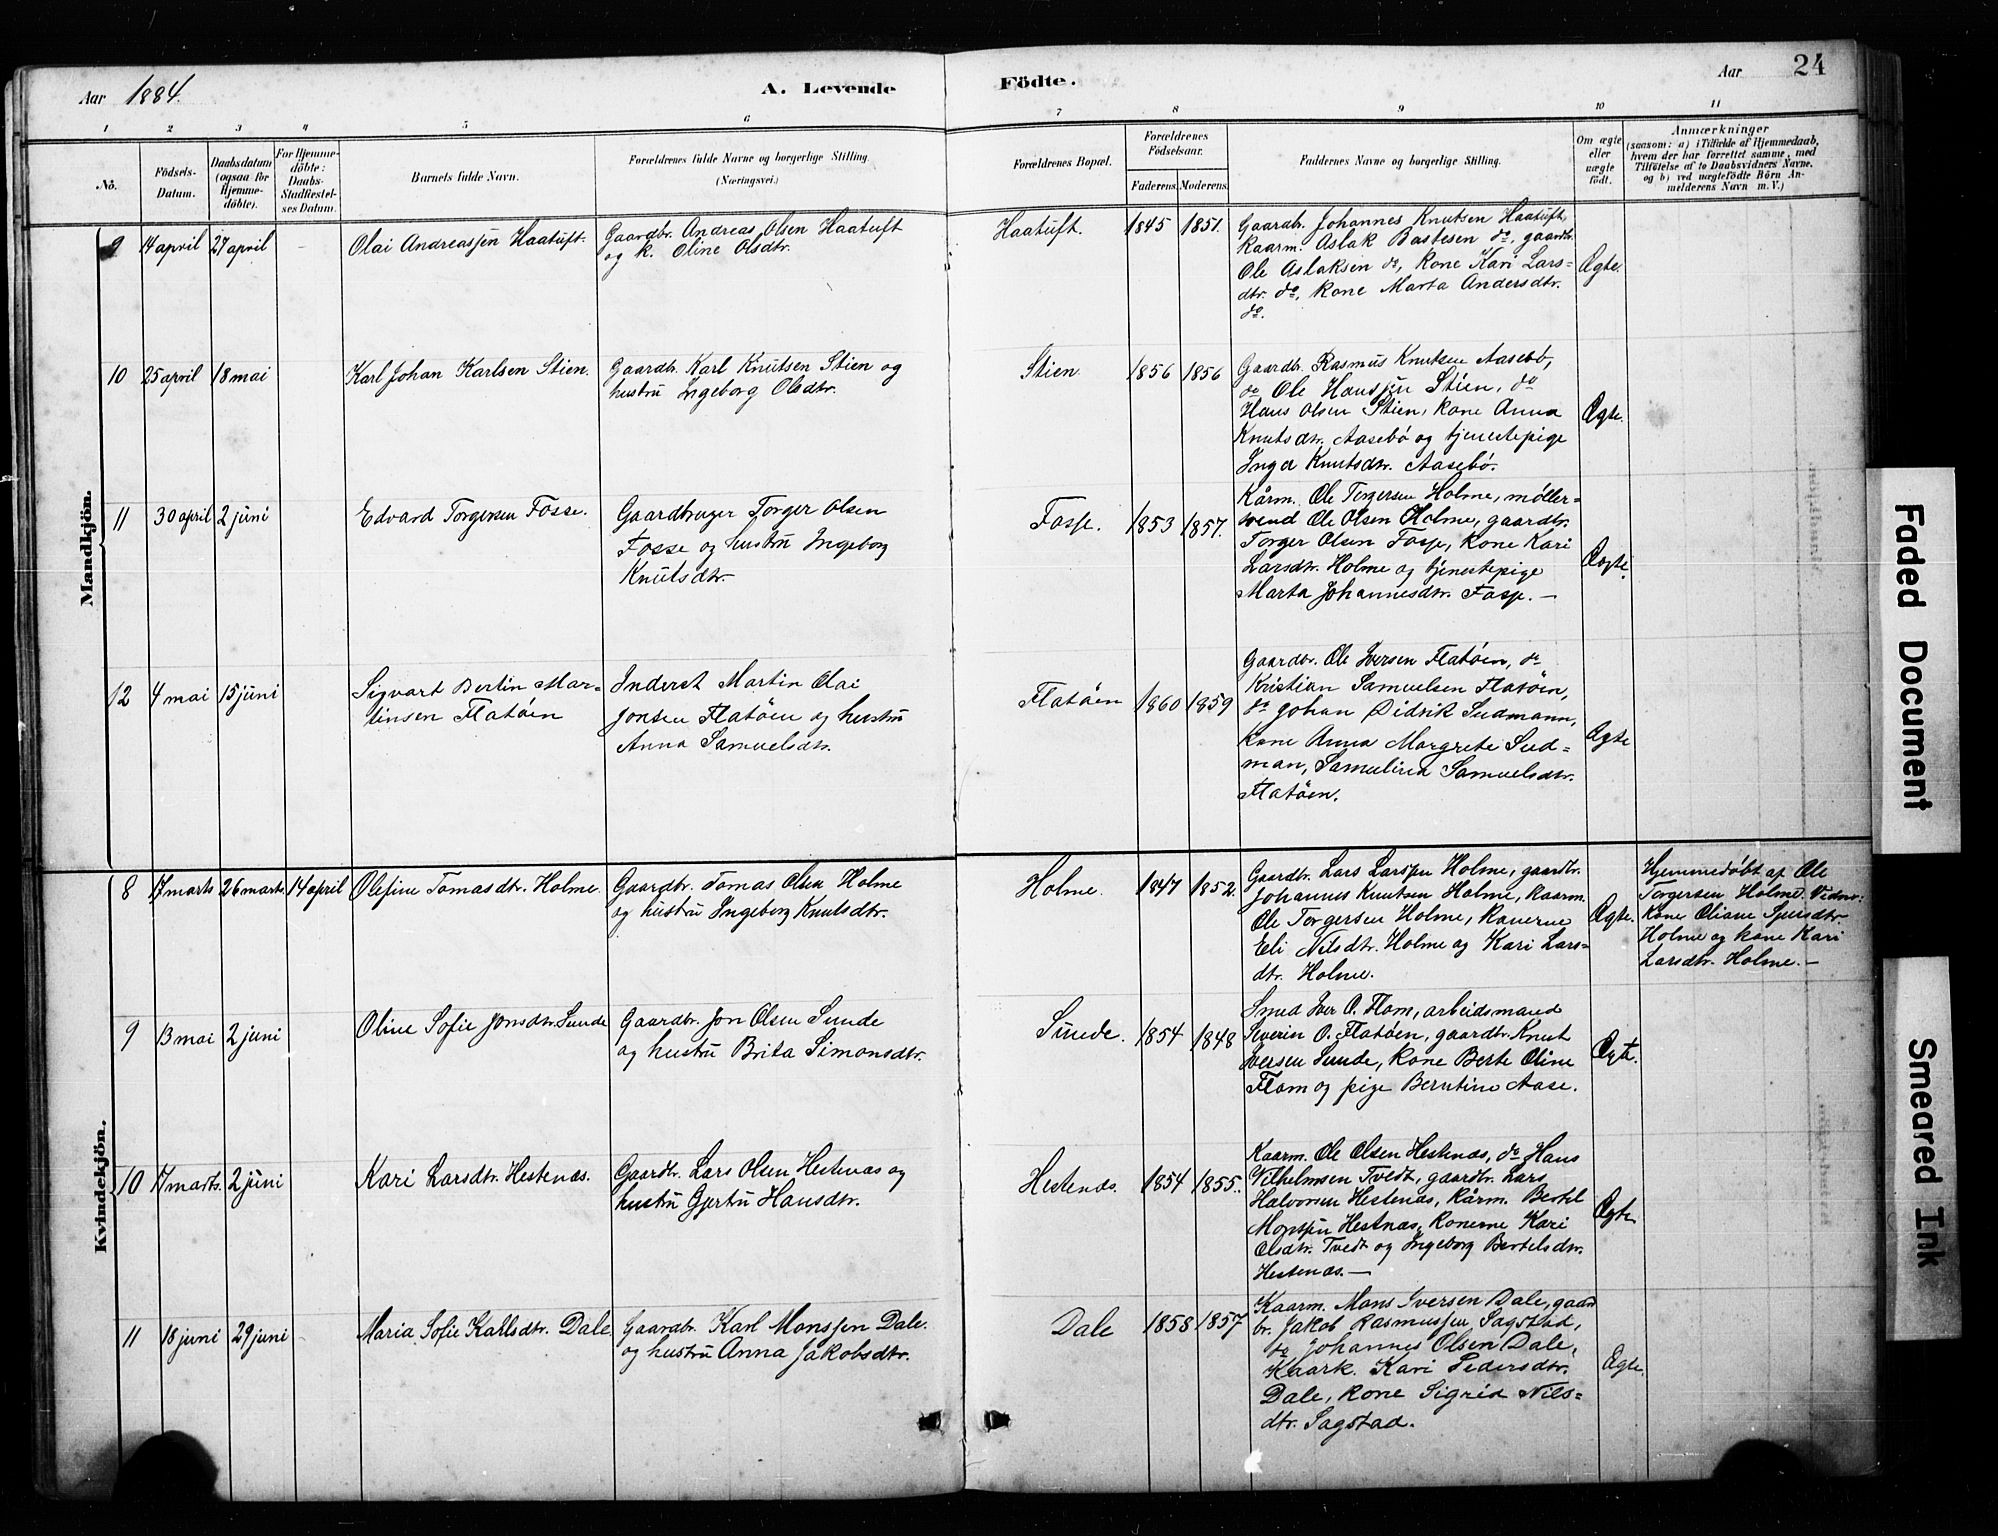 Aar 1884.
A. Levende Födte.
Aar 24
1 2 3 4 5 6 7 8 9 10 11
No.
Födsels-
Datum.
Daabsdatum
(ogsaa for
Hjemme-
döbte).
For Hjemme-
döbte:
Daabs-
Stadfæstel-
ses Datum.
Barnets fulde Navn.
Forældrenes fulde Navne og borgerlige Stilling.
(Næringsvei.)
Forældrenes Bopæl.
Forældrenes
Födselsaar.
Faderens. Moderens.
Faddernes Navne og borgerlige Stilling.
Om ægte
eller
uægte
födt.
Anmærkninger
(saasom: a) i Tilfælde af Hjemmedaab,
hvem der har forrettet samme, med
Tilföielse af to Daabsvidners Navne,
og b) ved uægtefödte Börn An-
melderens Navn m. V.)
Mandkjön.
9 14 april 27 april
Olai Andreasjen Haatuft.
Gaardbr. Andreas Olsen Haatuft
og k. Oline Olsdtr.
Haatuft. 1845 1851.
Gaardbr. Johannes Knutsen Haatuft,
Kaarm. Aslak Bastesen do, gaardbr.
Ole Aslaksen do, Kone Kari Lars=
dtr. do, Kone Marta Andersdtr.
do.
Ægte.
10 25 april 18 mai
Karl Johan Karlsen Stien.
Gaardbr. Karl Knutsen Stien og
hustru Ingeborg Olsdtr.
Stien 1856 1856
Gaardbr. Rasmus Knutsen Aasebö,
do Ole Hansjen Stien, do
Hans Olsen Stien, Kone Anna
Knutsdtr. Aasebö og tjenestepige
Inga Knutsdtr. Aasebö.
Ægte.
11 30 april 2 juni
Edvard Torgersen Fosse.
Gaardbruger Torger Olsen
Fosse og hustru Ingeborg
Knutsdtr.
Fosse. 1853 1857.
Kårm. Ole Torgersen Holme, møller=
svend Ole Olsen Holme, gaardbr.
Torger Olsen Fosse, Kone Kari
Larsdtr. Holme og tjenestepige
Marta Johannesdtr. Fosse. —
Ægte.
12 4 mai 15 juni
Sigvart Bertin Mar=
tinsen Flatöen
Inderst Martin Olai
Jonsen Flatöen og hustru
Anna Samuelsdtr.
Flatöen 1860 1859
Gaardbr. Ole Iversen Flatöen, do
Kristian Samuelsen Flatöen,
do Johan Didrik Sudmann,
Kone Anna Margrete Sud=
man, Samuline Samuelsdtr.
Flatöen.
Ægte
Kvindekjön.
8 17 marts 26 marts. 14 april
Olefine Tomasdtr. Holme.
Gaardbr. Tomas Olsen Holme
og hustru Ingeborg Knutsdtr.
Holme. 1847 1852.
Gaardbr. Lars Larssen Holme, gaardbr.
Johannes Knutsen Holme, Kaarm.
Ole Torgersen Holme, Konerne
Eli Nilsdtr. Holme og Kari Lars=
dtr. Holme.
Ægte.
Hjemmedöbt af Ole
Torgersen Holme. Vidner:
Kone Oliane Sjursdtr.
Holme og kone Kari
Larsdtr. Holme. —
9 13 mai 2 juni
Oline Sofie Jonsdtr. Sunde
Gaardbr. Jon Olsen Sunde
og hustru Brita Simonsdtr.
Sunde. 1854 1848
Smed Iver O. Flom, arbeidsmand
Severin O. Flatöen, gaardbr. Knut
Iversen Sunde, Kone Berte Oline
Flom og pige Berntine Aase.
Ægt.
10 17 marts. 2 juni
Kari Larsdtr. Hestenæs.
Gaardbr. Lars Olsen Hestenæs og
hustru Gjertru Hansdtr.
Hestenæs. 1854 1855.
Kaarm. Ole Olsen Hestenæs, do Hans
Vilhelmsen Tvedt, gaardbr. Lars
Halvorsen Hestenæs, Kårm. Bertel
Monssen Hestnæs, Konerne Kari
Olsdtr. Tvedt og Ingeborg Bertelsdtr.
Hestenæs. —
Ægte
11 18 juni 29 juni
Maria Sofie Karlsdtr. Dale
Gaardbr. Karl Monssen Dale.
og hustru Anna Jakobsdtr.
Dale 1858 1857
Kaarm. Mons Iversen Dale, gaard
br. Jakob Rasmussen Sagstad,
do Johannes Olsen Dale,
Kaark. Kari Pedersdtr.
Dale, Kone Sigrid Nils=
dtr. Sagstad.
Ægte.
Faded Document
Smeared Ink